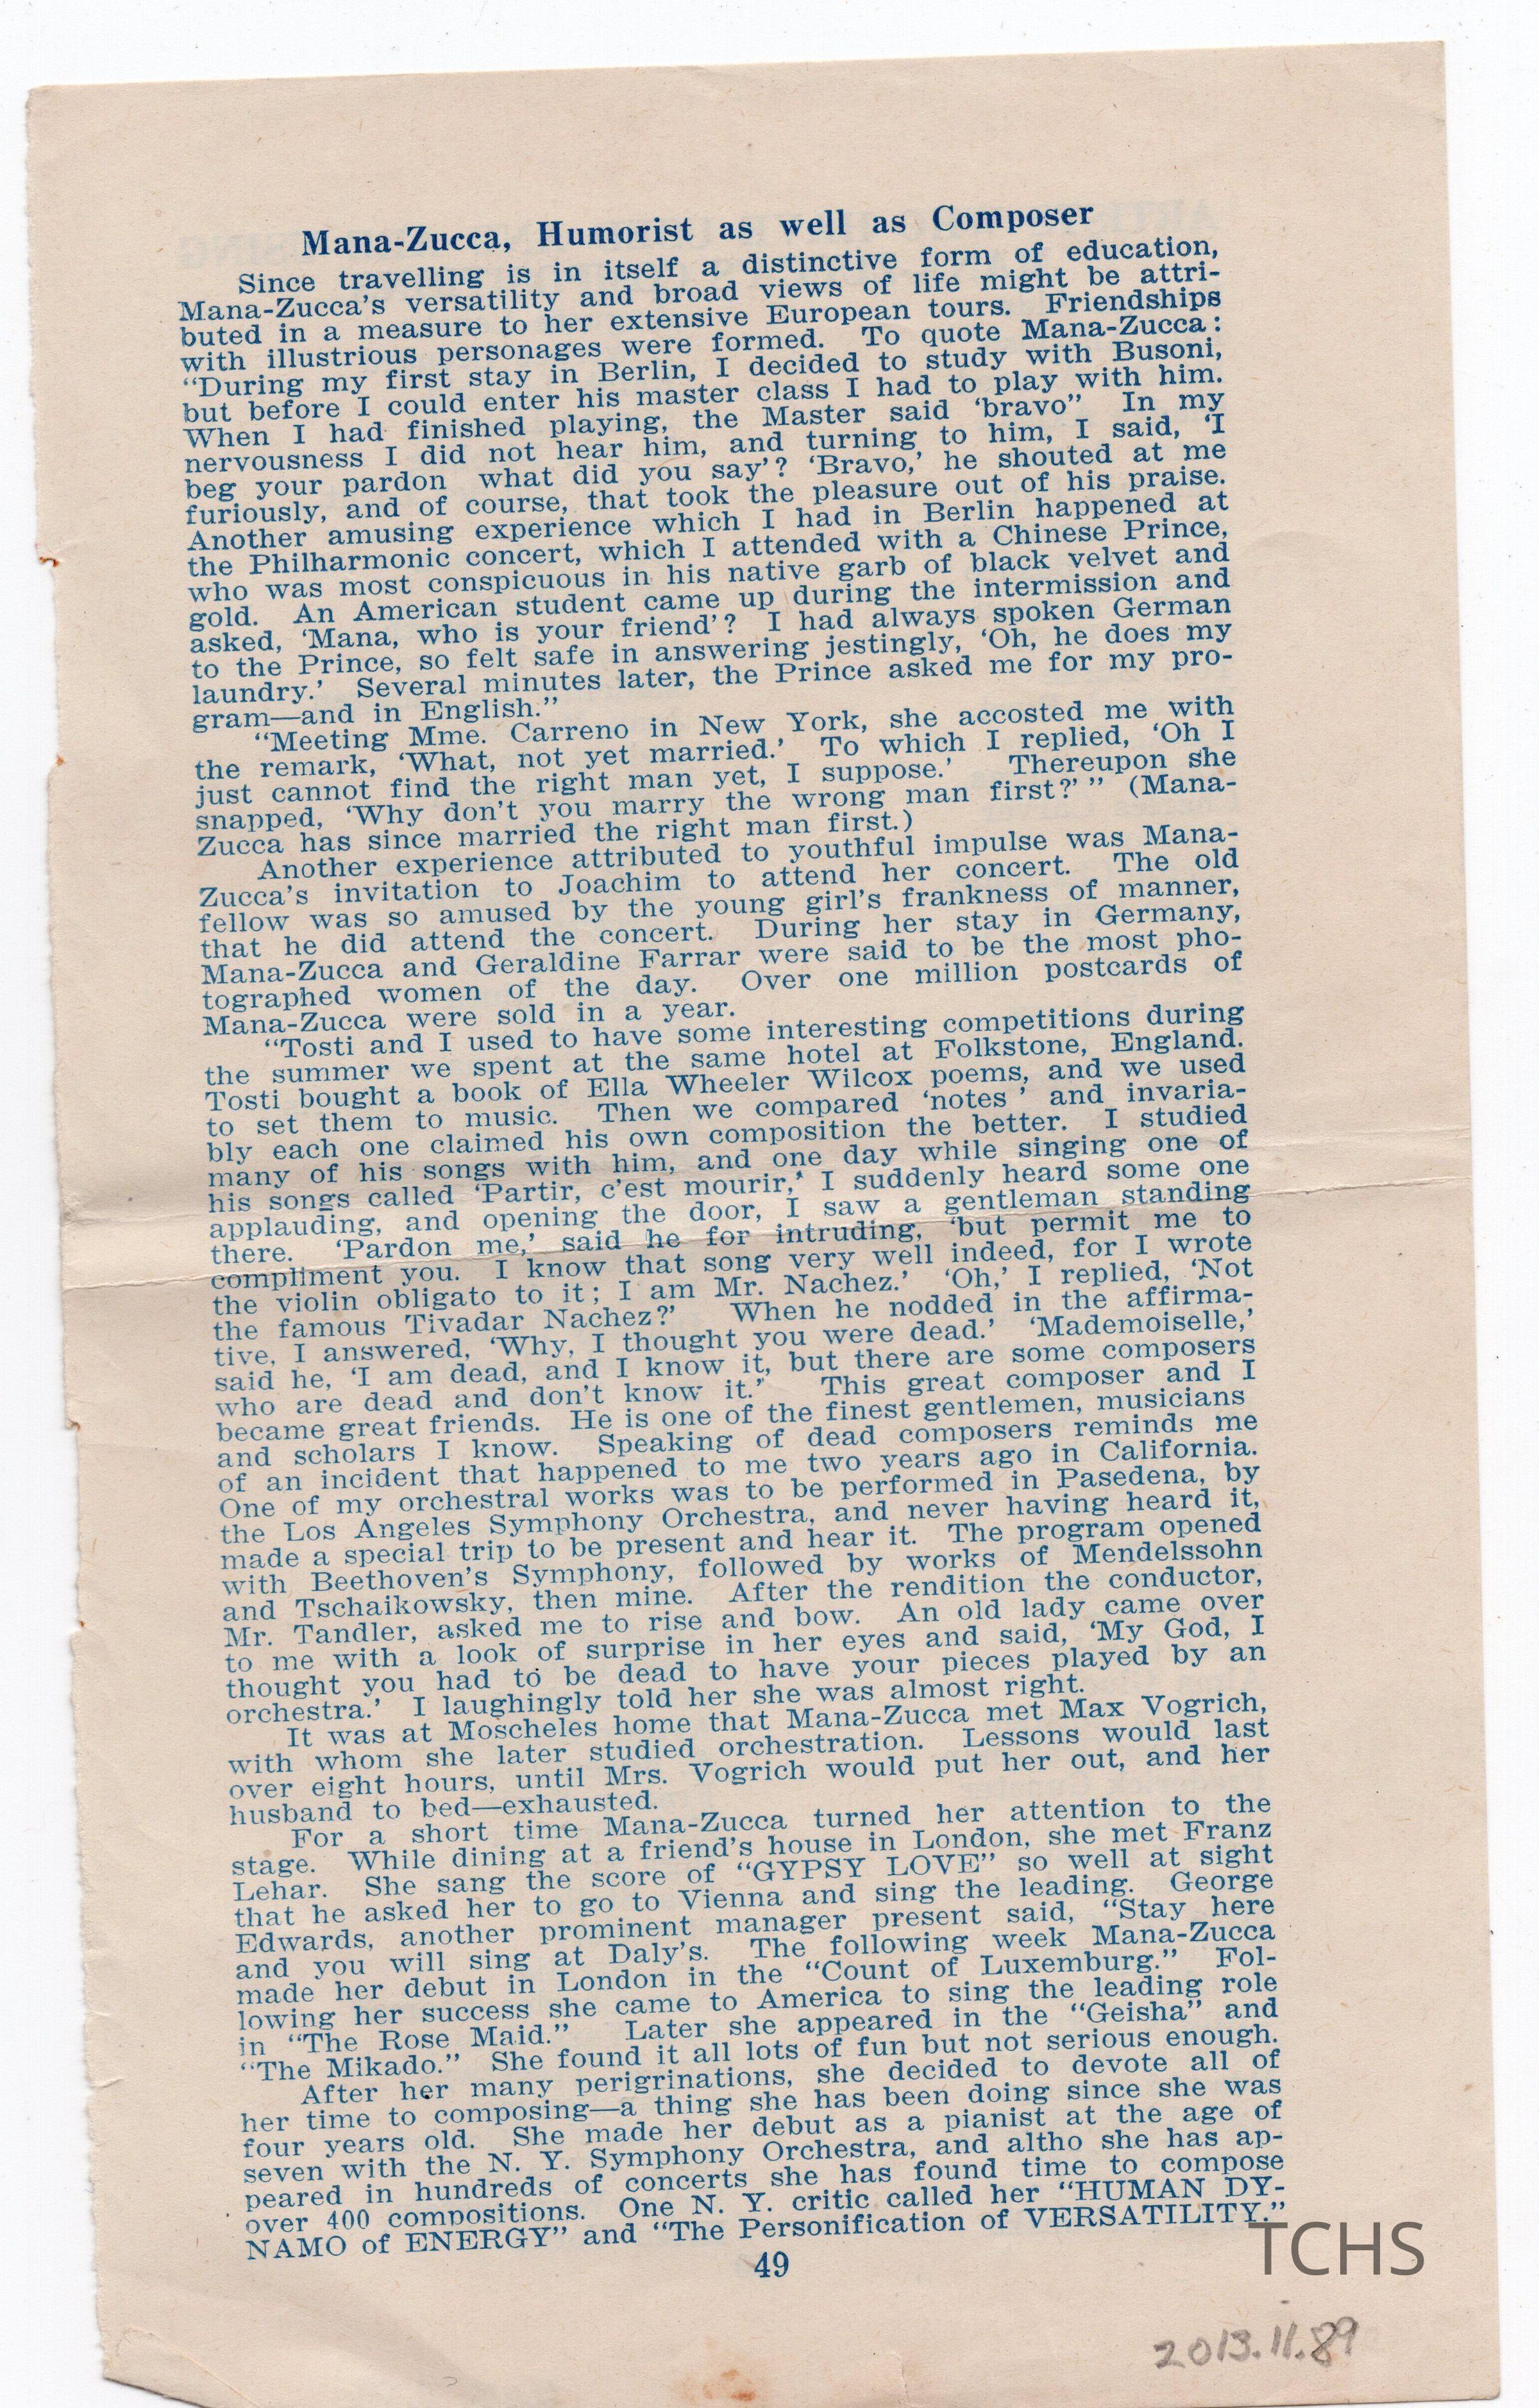 Mana-Zucca, Humorist as well as Composer
Since travelling is in itself a distinctive form of education,
Mana-Zucca's versatility and broad views of life might be attri-
buted in a measure to her extensive European tours. Friendships
with illustrious personages were formed. To quote Mana-Zucca:
"During my first stay in Berlin, I decided to study with Busoni,
but before I could enter his master class I had to play with him.
When I had finished playing, the Master said 'bravo" In my
nervousness I did not hear him, and turning to him, I said, 'I
beg your pardon what did you say'? 'Bravo,' he shouted at me
furiously, and of course, that took the pleasure out of his praise.
Another amusing experience which I had in Berlin happened at
the Philharmonic concert, which I attended with a Chinese Prince,
who was most conspicuous in his native garb of black velvet and
gold. An American student came up during the intermission and
asked, 'Mana, who is your friend'? I had always spoken German
to the Prince, so felt safe in answering jestingly, 'Oh, he does my
laundry.' Several minutes later, the Prince asked me for my pro-
gram—and in English."
"Meeting Mme. Carreno in New York, she accosted me with
the remark, 'What, not yet married.' To which I replied, 'Oh I
just cannot find the right man yet, I suppose.' Thereupon she
snapped, 'Why don't you marry the wrong man first?' " (Mana-
Zucca has since married the right man first.)
Another experience attributed to youthful impulse was Mana-
Zucca's invitation to Joachim to attend her concert. The old
fellow was so amused by the young girl's frankness of manner,
that he did attend the concert. During her stay in Germany,
Mana-Zucca and Geraldine Farrar were said to be the most pho-
tographed women of the day. Over one million postcards of
Mana-Zucca were sold in a year.
"Tosti and I used to have some interesting competitions during
the summer we spent at the same hotel at Folkstone, England.
Tosti bought a book of Ella Wheeler Wilcox poems, and we used
to set them to music. Then we compared 'notes ' and invaria-
bly each one claimed his own composition the better. I studied
many of his songs with him, and one day while singing one of
his songs called 'Partir, c'est mourir,' I suddenly heard some one
applauding, and opening the door, I saw a gentleman standing
there. 'Pardon me,' said he for intruding, 'but permit me to
compliment you. I know that song very well indeed, for I wrote
the violin obligato to it; I am Mr. Nachez.' 'Oh,' I replied, 'Not
the famous Tivadar Nachez?' When he nodded in the affirma-
tive, I answered, 'Why, I thought you were dead.' 'Mademoiselle,'
said he, 'I am dead, and I know it, but there are some composers
who are dead and don't know it.' This great composer and I
became great friends. He is one of the finest gentlemen, musicians
and scholars I know. Speaking of dead composers reminds me
of an incident that happened to me two years ago in California.
One of my orchestral works was to be performed in Pasedena, by
the Los Angeles Symphony Orchestra, and never having heard it,
made a special trip to be present and hear it. The program opened
with Beethoven's Symphony, followed by works of Mendelssohn
and Tschaikowsky, then mine. After the rendition the conductor,
Mr. Tandler, asked me to rise and bow. An old lady came over
to me with a look of surprise in her eyes and said, 'My God, I
thought you had to be dead to have your pieces played by an
orchestra.' I laughingly told her she was almost right.
It was at Moscheles home that Mana-Zucca met Max Vogrich,
with whom she later studied orchestration. Lessons would last
over eight hours, until Mrs. Vogrich would put her out, and her
husband to bed—exhausted.
For a short time Mana-Zucca turned her attention to the
stage. While dining at a friend's house in London, she met Franz
Lehar. She sang the score of "GYPSY LOVE" so well at sight
that he asked her to go to Vienna and sing the leading. George
Edwards, another prominent manager present said, "Stay here
and you will sing at Daly's. The following week Mana-Zucca
made her debut in London in the "Count of Luxemburg." Fol-
lowing her success she came to America to sing the leading role
in "The Rose Maid." Later she appeared in the "Geisha" and
"The Mikado." She found it all lots of fun but not serious enough.
After her many perigrinations, she decided to devote all of
her time to composing—a thing she has been doing since she was
four years old. She made her debut as a pianist at the age of
seven with the N. Y. Symphony Orchestra, and altho she has ap-
peared in hundreds of concerts she has found time to compose
over 400 compositions. One N. Y. critic called her "HUMAN DY-
NAMO of ENERGY" and "The Personification of VERSATILITY."
49
TCHS
2013.11.89